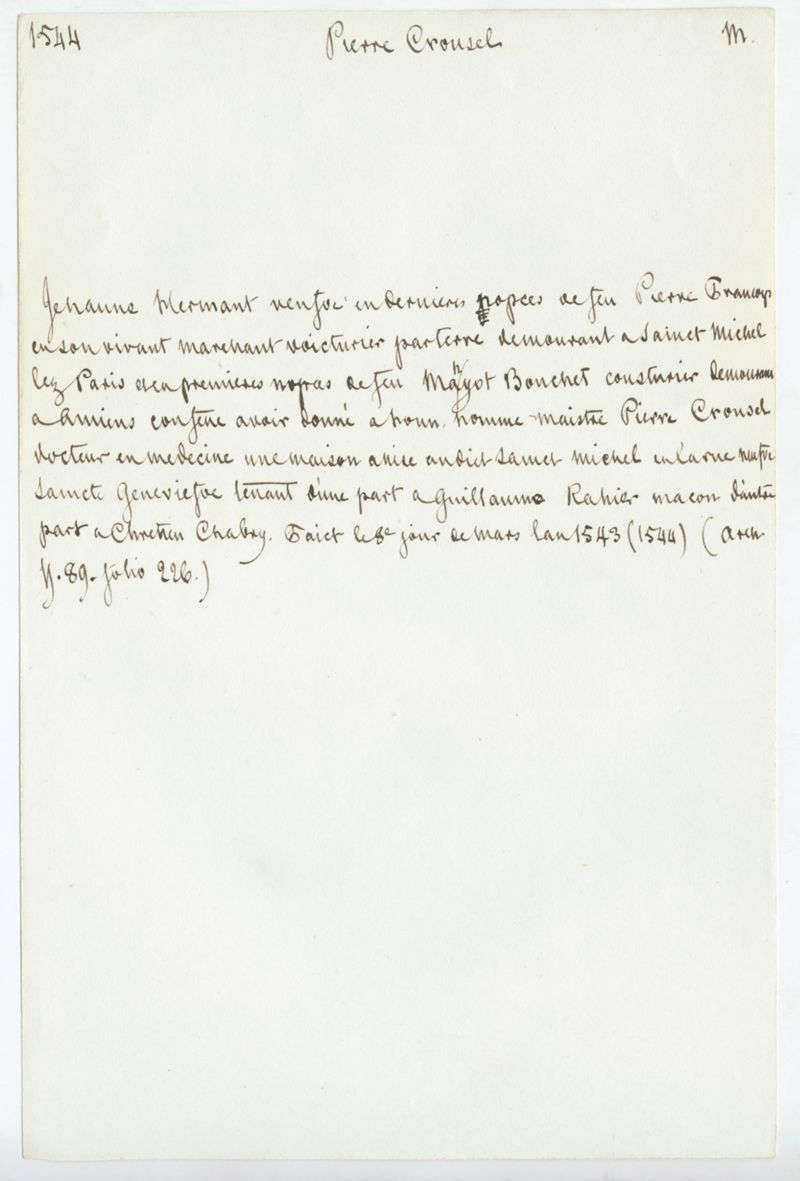 1544 Pierre Crousel M.
Jehanne Mermant veufve en dernieres nopces de feu Pierre Françoys
en son vivant marchant voicturier par terre demourant a Sainct Michel
lez Paris et en premieres nopces de feu Bouchet cousturier demourant
a Amiens confesse avoir donné a honn. homme maistre Pierre Crousel
docteur en medecine une maison assise audict Sainct Michel en la rue neufve
Saincte Geneviefve tenant d'une part a Guillaume Rahier macon d'autre
part a Chretien Chabry. Faict le 8e jour de mars lan 1543 (1544) (Arch.
Y. 89. folio 226.)